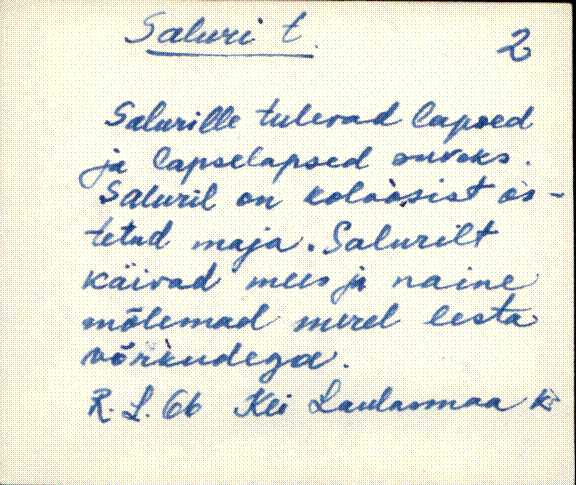 Saluri t.
2
Salurille tulevad lapsed
ja lapselapsed suveks.
Saluril on koloosist os-
tetud maja. Salurilt
käivad mees ja naine
mõlemad merel lesta
võrkudega.
R. L. 66 Kei Laulasmaa k